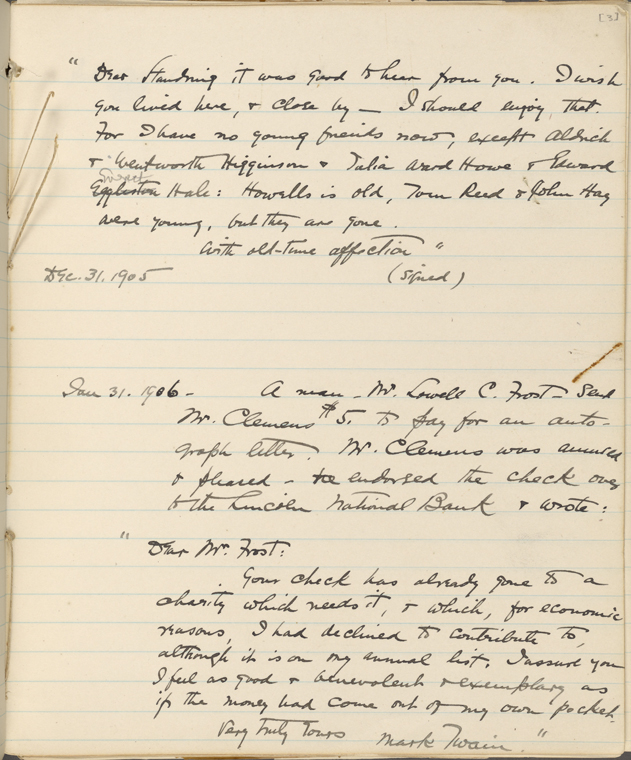 [3]
" Dear Standring it was good to hear from you. I wish
you lived here, & close by — I should enjoy that.
For I have no young friends now, except Aldrich
& Wentworth Higginson & Julia Ward Howe & Edward
Everett
Eggleston Hale: Howells is old, Tom Reed & John Hay
were young, but they are gone.
With old-time affection "
Dec. 31. 1905 (signed)
Jan 31. 1906 - A man - Mr. Lowell C. Frost - send
Mr. Clemens $5. to pay for an auto-
graph letter. Mr. Clemens was amused
& pleased - he endorsed the check over
to the Lincoln National Bank & wrote:
" Dear Mr. Frost:
Your check has already gone to a
charity which needs it, & which, for economic
reasons, I had declined to contribute to,
although it is on my annual list. I assure you
I feel as good & benevolent & exemplary as
if the money had come out of my own pocket.
Very truly yours Mark Twain. "